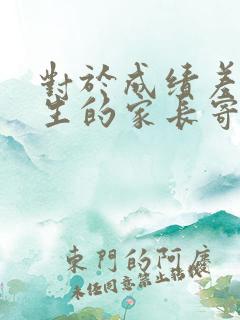 對於成績差
生的家長寄
東門的阿廣
未任同意禁止轉載